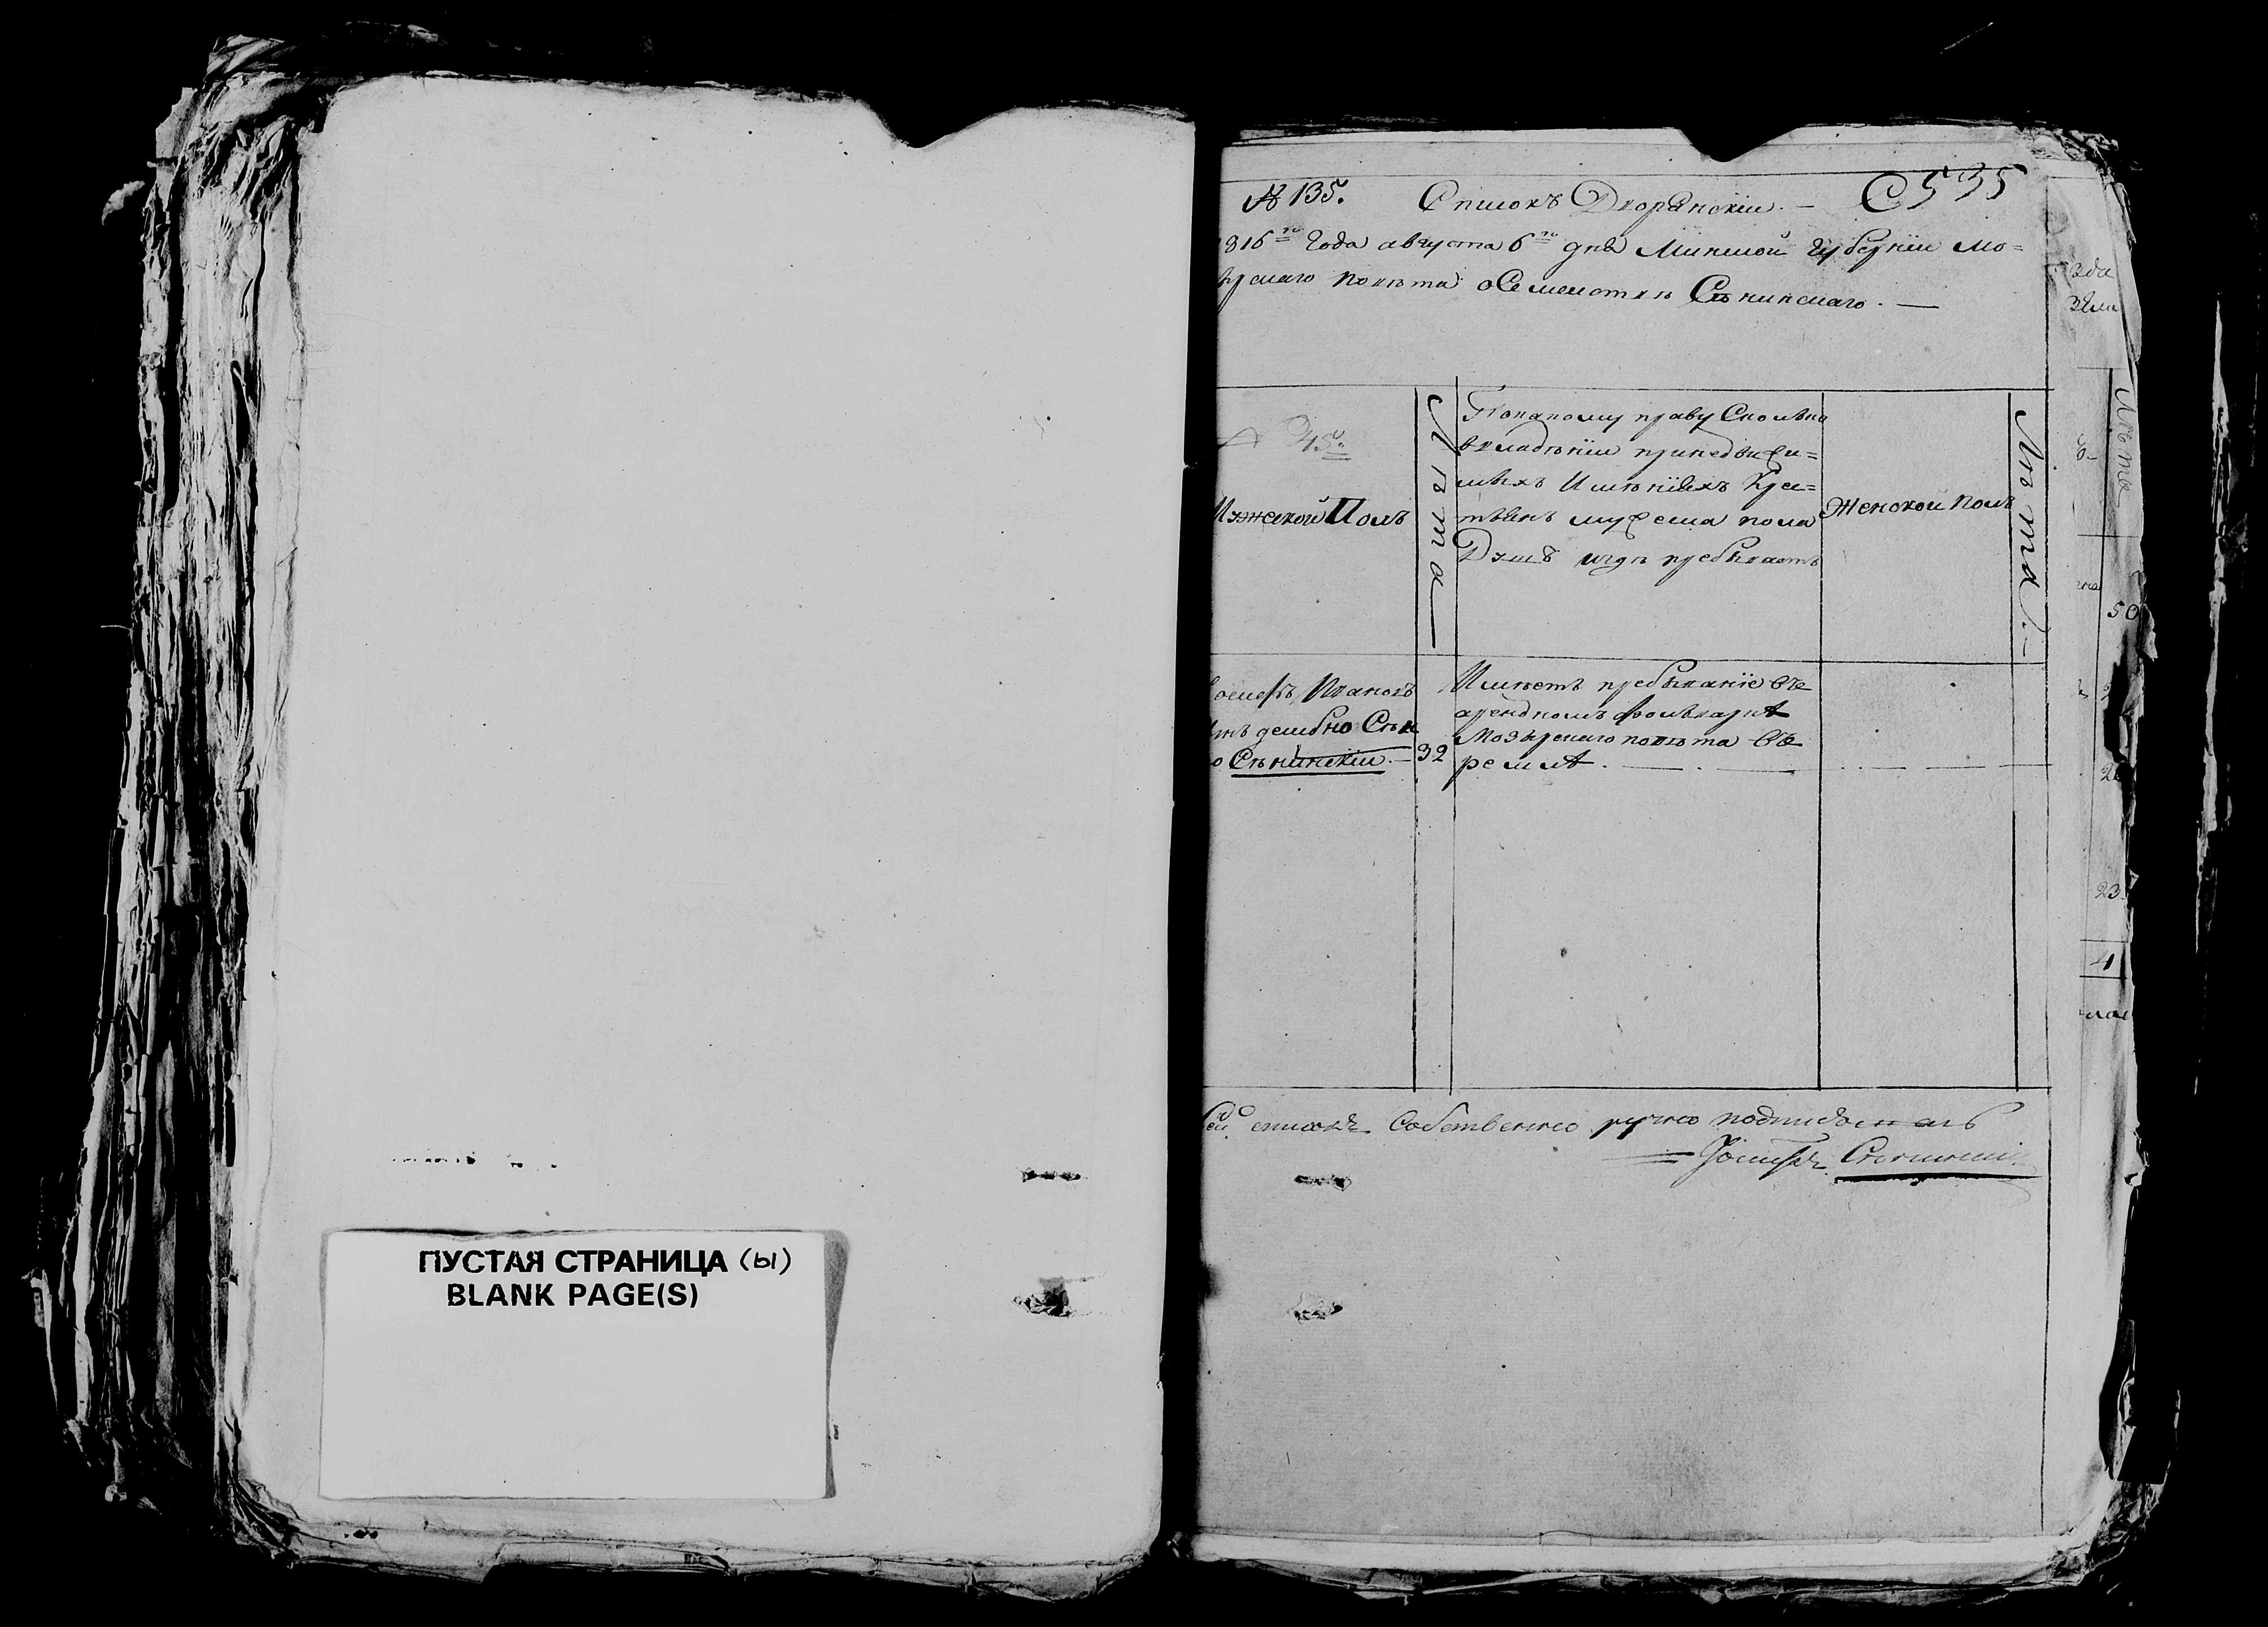 ПУСТАЯ СТРАНИЦА (ы)
BLANK PAGE(S)
№ 135. Списокъ Дворанскiи. — 535
816го Года августа 6го дня Минской Губернiи Мо=
зырскаго повѣта о Семействѣ Сѣнинскаго. —
45
Мужеской Полъ
Лѣта
Покакому праву Сколько
владѣнiи принедвижи=
мыхъ Имѣнiяхъ Крес=
тьянъ мужеска пола
Душъ игдѣ пребываетъ
Женской Полъ
Лѣта
осифъ Ивановъ
Сѣнинскiи. — 32
Имѣетъ пребыванiе въ
арендномъ фольваркѣ
Мозырскаго повѣта въ
ремлѣ. —
Сей списокъ Собственно ручно подписалъ
Iосифъ Сѣнинскiй
50
23
4